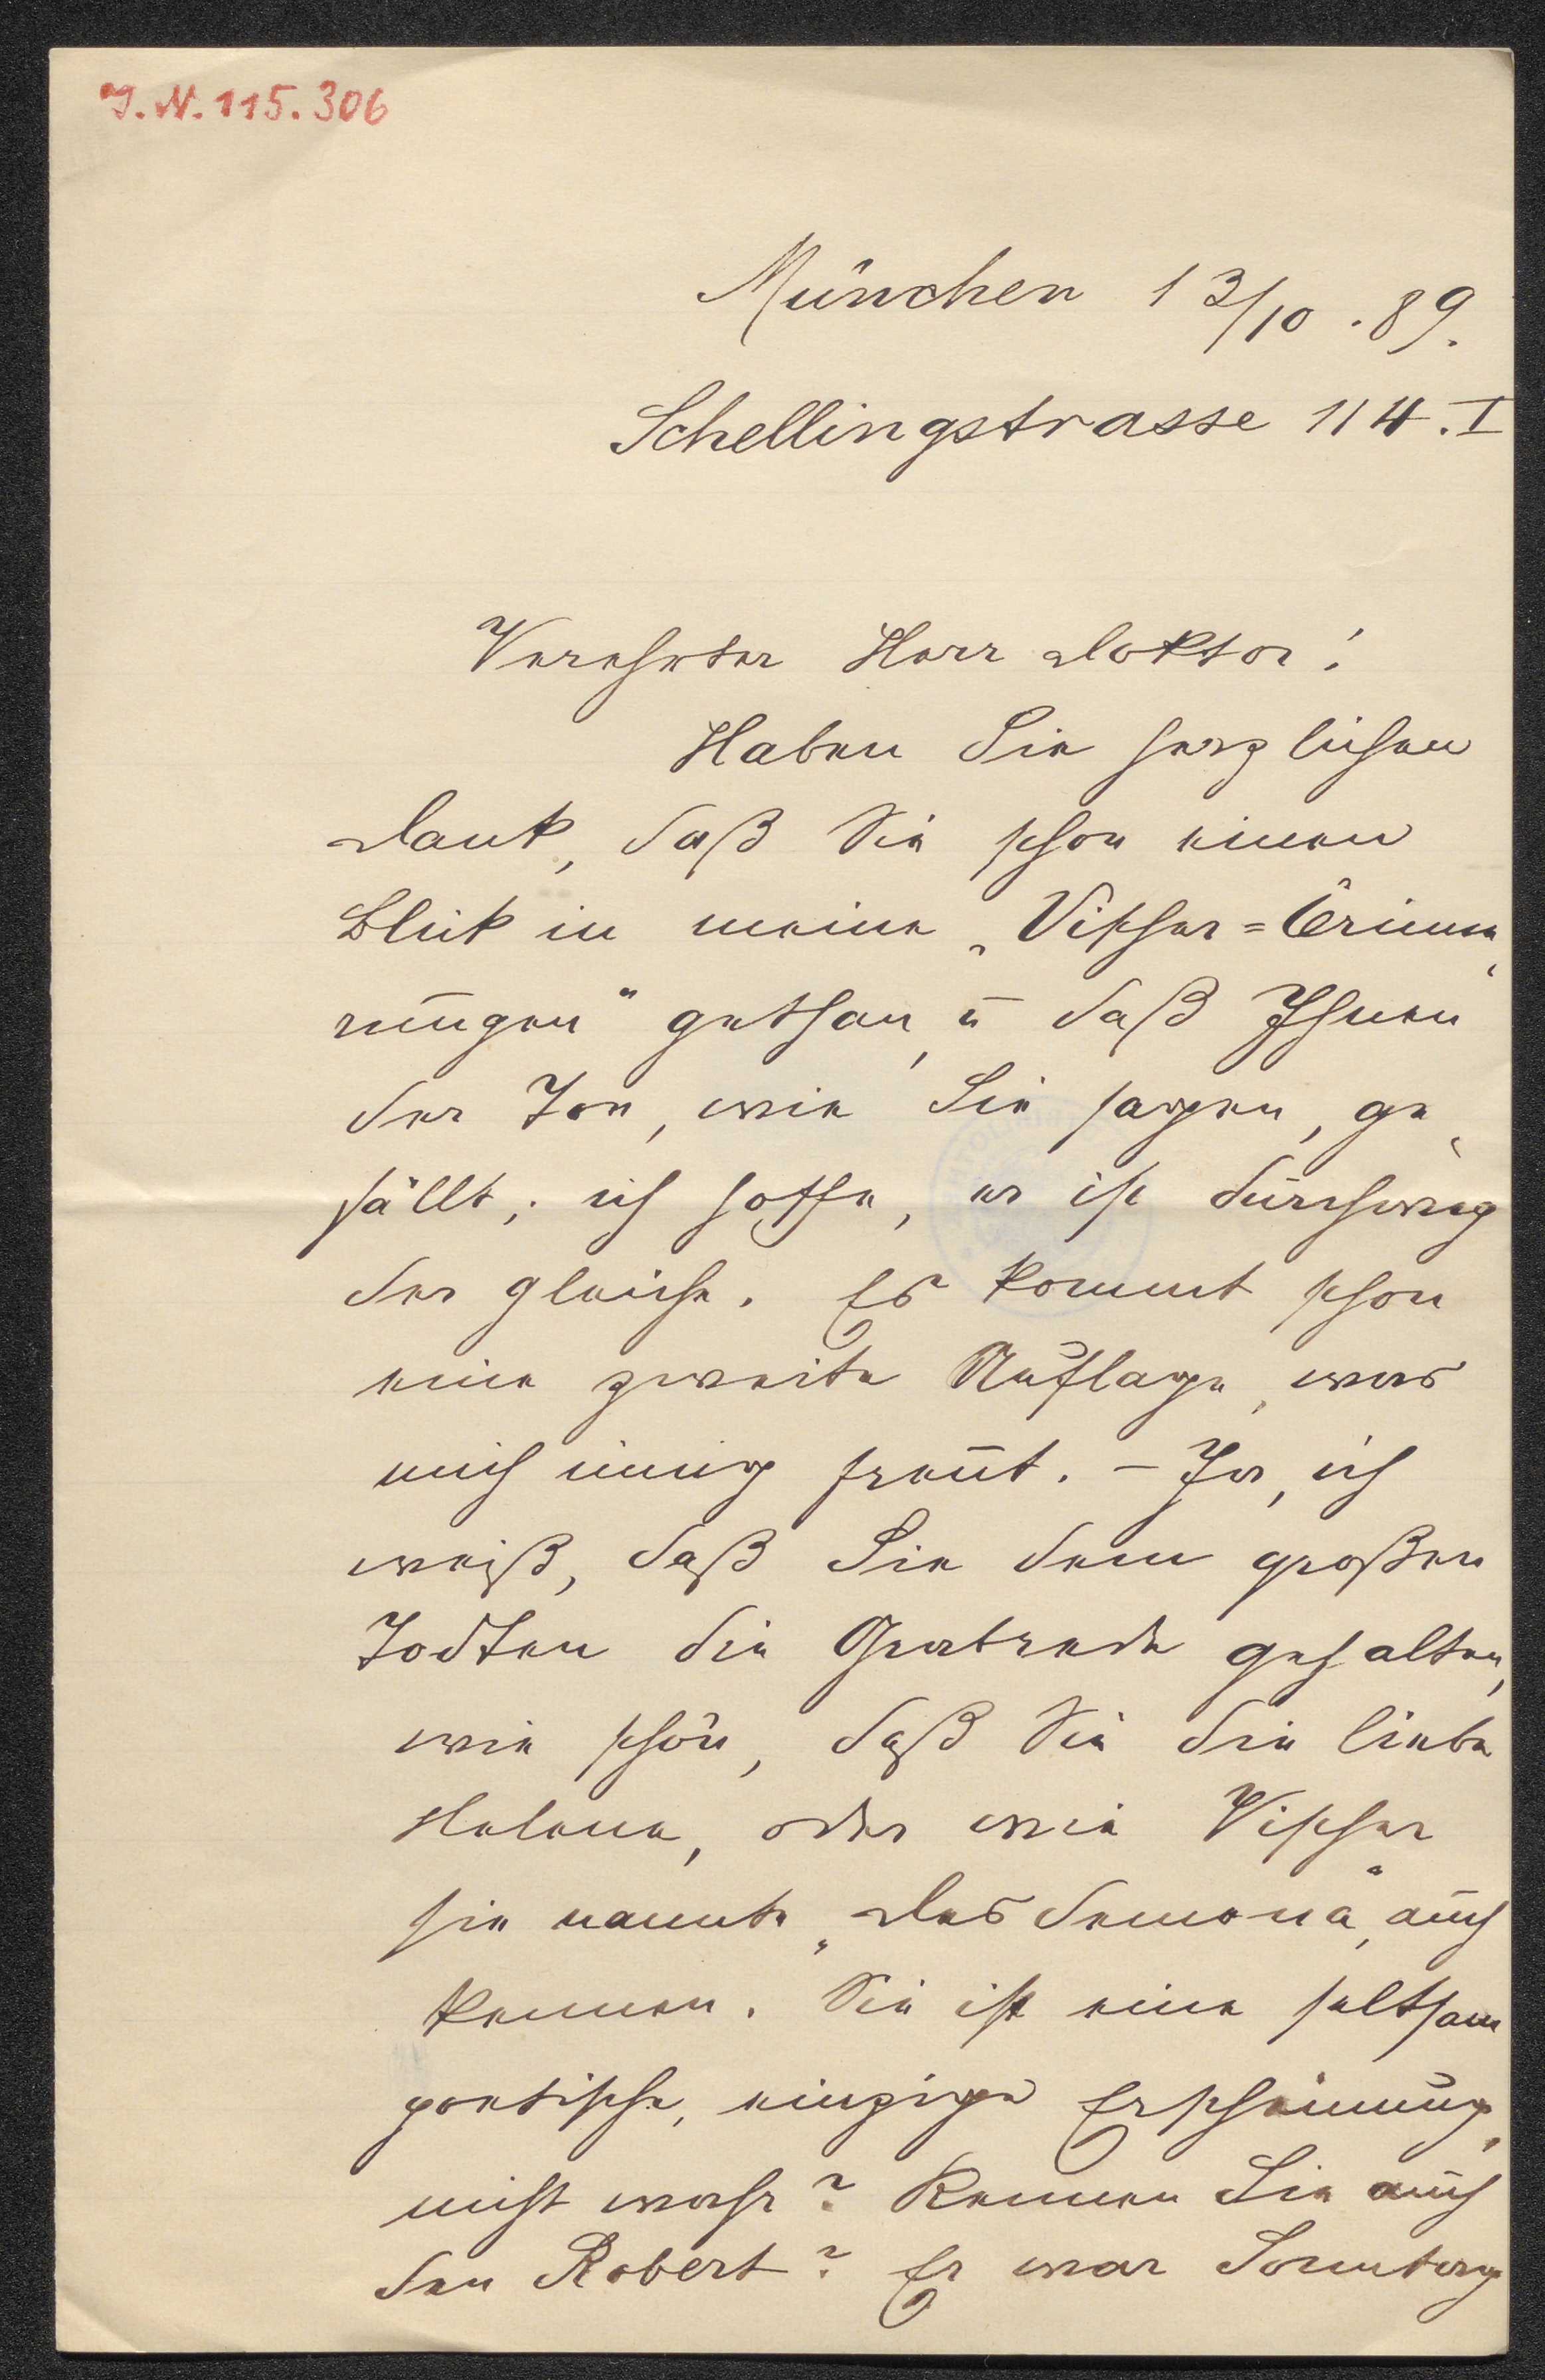 J. N. 115.306
München 13/10. 89.
Schellingstrasse 114. I
Verehrter Herr Doktor!
Haben Sie herzlichen
Dank, daß Sie schon einen
Blick in meine „Vischer=Erinne
rungen“ gethan, u daß Ihnen
der Ton, wie Sie sagen, ge
fällt; ich hoffe, er ist durchweg
der gleiche. Es kommt schon
eine zweite Auflage, was
mich innig freut. – Ja, ich
weiß, daß Sie dem großen
Todten die Grabrede gehalten,
wie schön, daß Sie die liebe
Helene, oder wie Vischer
sie nannte „Desdemona“, auch
kennen. Sie ist eine seltsam
poetische, einzige Erscheinung,
nicht wahr? Kennen Sie auch
den Robert? Er war Sonntag